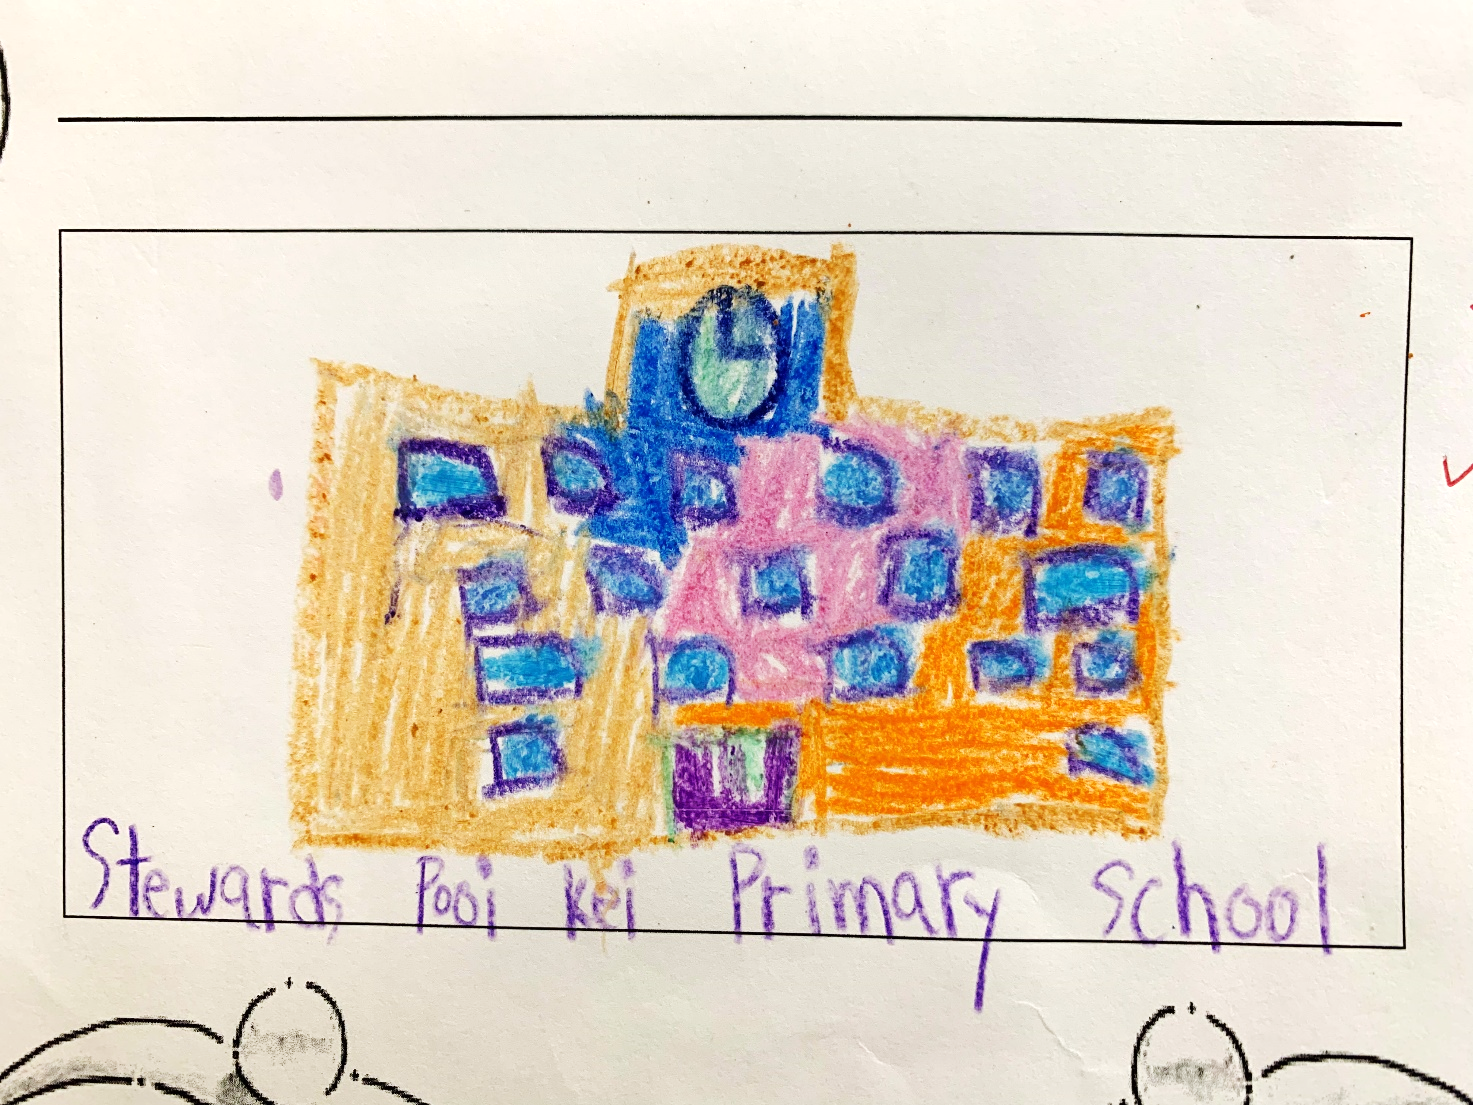 Stewards Pooi Kei Primary School